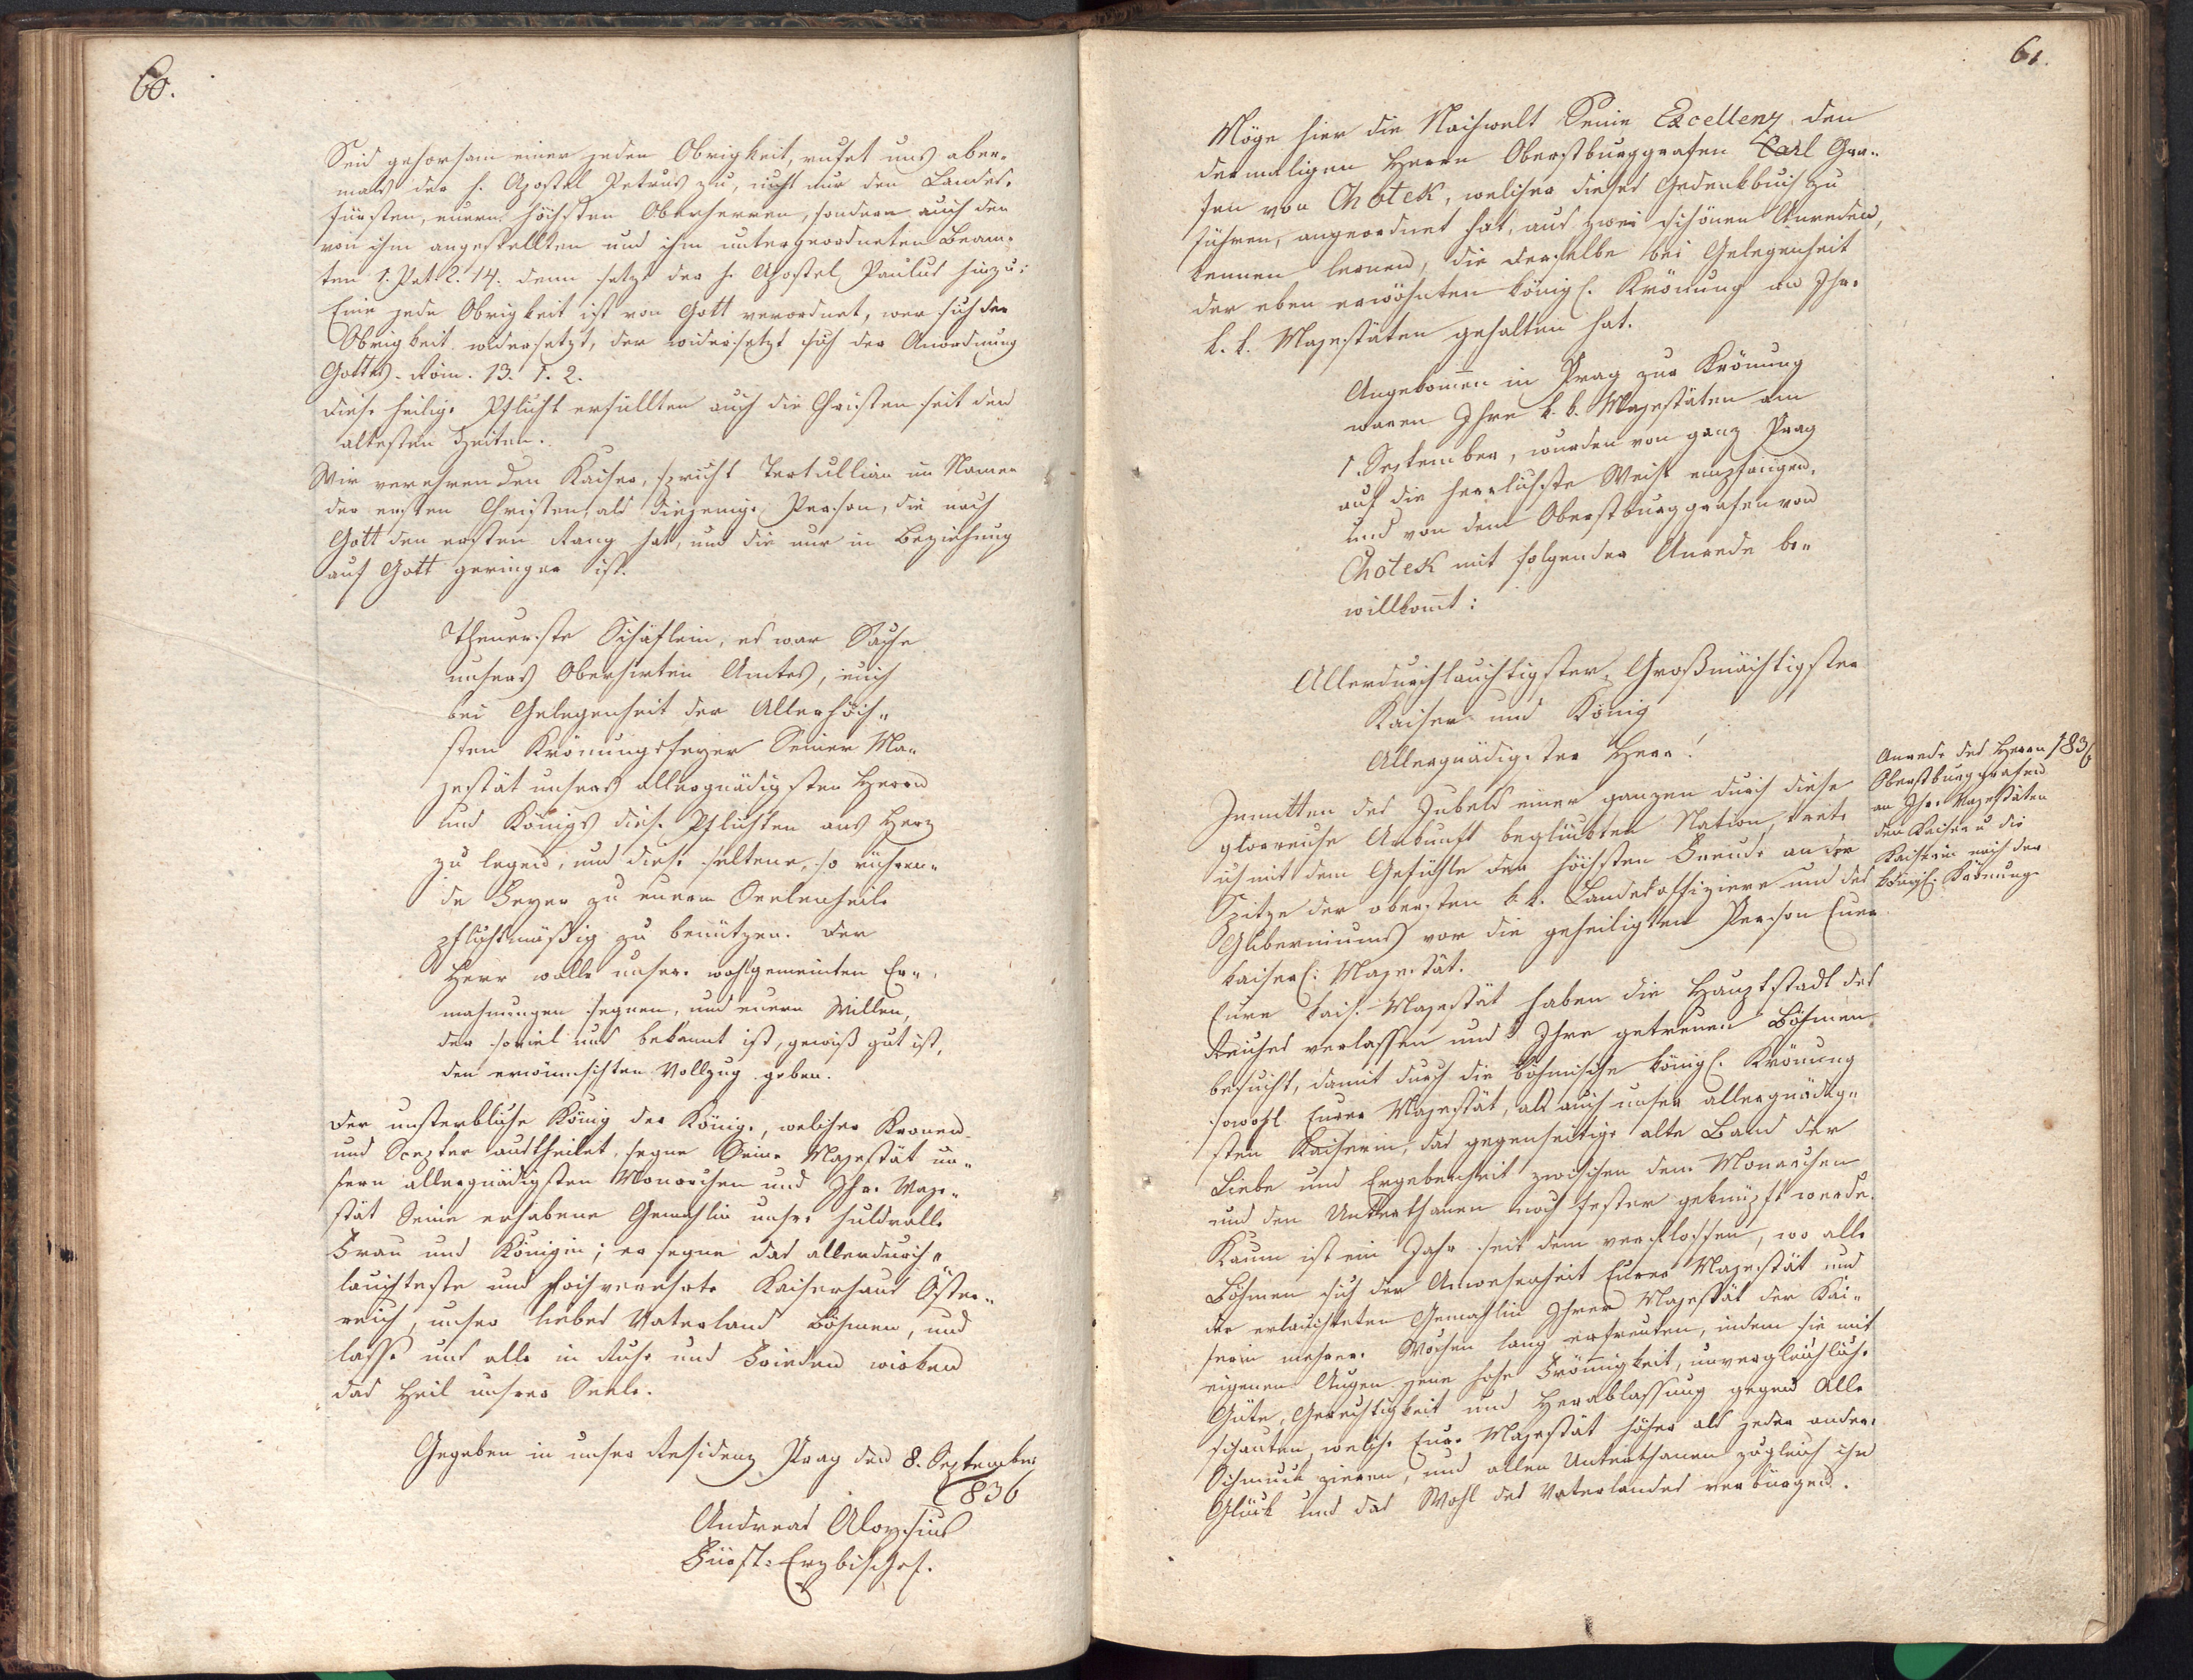 60.
Seid gehorsam einer jeden Obrigkeit, rufet uns aber-
mals der h. Apostel Petrus zu, nicht nur den Landes-
fürsten, euern höchsten Oberherren, sondern auch den
von ihm angestellten und ihm untergeordneten Beam-
ten 1. Pet. 2. 14. denn setzt der h. Apostel Paulus hinzu:
Eine jede Obrigkeit ist von Gott verordnet, wer sich der
Obrigkeit widersetzt, der widersetzt sich der Anordnung
Gottes. Röm. 13. 1. 2.
Diese heilige Pflicht erfüllten auch die Christen seit den
ältesten Zeiten.
Wir verehren den Kaiser, spricht Tertullian im Namen
der ersten Christen, als diejenige Person, die nach
Gott den ersten Rang hat, und die nur in Beziehung
auf Gott geringer ist.
Theuerste Schäflein, es war Sache
unsers Oberhirten Amtes, euch
bei Gelegenheit der Allerhöch-
sten Krönungsfeyer Seiner Ma-
jestät unsers allergnädigsten Herrn
und Königs diese Pflichten ans Herz
zu legen, und diese seltene, so rühren-
de Feyer zu eurem Seelenheile
pflichtmäßig zu benützen. Der
Herr wolle unsere wohlgemeinten Er-
mahnungen segnen, und euern Willen,
der soviel uns bekannt ist, gewiß gut ist,
den erwünschten Vollzug geben.
Der unsterbliche König der Könige, welcher Kronen
und Scepter austheilet, segne Seine Majestät un-
sern allergnädigsten Monarchen und Ihre Maje-
stät Seine erhabene Gemahlin unsre huldvolle
Frau und Königin; er segne das allerdurch-
lauchteste und hochverehrte Kaiserhaus Öster-
reich, unser liebes Vaterland Böhmen, und
lasse uns alle in Ruhe und Frieden wirken
das Heil unserer Seele.
Gegeben in unser Residenz Prag den 8. September
1836
Andreas Aloysius
Fürst-Erzbischof.
61.
Möge hier die Nachwelt Seine Excellenz den
dermaligen Herrn Oberstburggrafen Carl Gra-
fen von Chotek, welcher dieses Gedenkbuch zu
führen, angeordnet hat, aus zwei schönen Anreden,
kennen lernen, die derselbe bei Gelegenheit
der eben erwöhnten königl. Krönung an Ihre
k. k. Majestäten gehalten hat.
Angekommen in Prag zur Krönung
waren Ihre k. k. Majestäten am
1. September, wurden von ganz Prag
auf die herrlichste Weise empfangen,
und von dem Oberstburggrafen von
Chotek mit folgender Anrede be-
willkommt:
Allerdurchlauchtigster, Großmächtigster
Kaiser und König
Allergnädigster Herr!
Anrede des Herrn 1836
Oberstburggrafen
an Ihre Majestäten
den Kaiser u die
Kaiserin nach der
königl. Krönung.
Inmitten des Jubels einer ganzen durch diese
glorreiche Ankunft beglückten Nation, trete
ich mit dem Gefühle der höchsten Freude an der
Spitze der obersten k. k. Landesoffiziere und des
Guberniums vor die geheiligten Person Eurer
kaiserl: Majestät.
Eure kais. Majestät haben die Hauptstadt des
Reiches verlassen und Ihre getreuen Böhmen
besucht, damit durch die böhmische königl. Krönung
sowohl Eurer Majestät, als auch unser allergnädig-
sten Kaiserin, das gegenseitige alte Band der
Liebe und Ergebenheit zwischen dem Monarchen
und den Unterthanen noch fester geknüpft werde.
Kaum ist ein Jahr seit dem verflossen, wo alle
Böhmen sich der Anwesenheit Eurer Majestät und
der erlauchteten Gemahlin Ihrer Majestät der Kai-
serin mehrere Wochen lang erfreuten, indem sie mit
eigenen Augen jene hohe Frömmigkeit, unvergleichliche
Güte, Gerechtigkeit und Herablassung gegen Alle
schauten, welche Eure Majestät höher als jeder andere
Schmuck zieren, und allen Unterthanen zugleich ihr
Glück und das Wohl des Vaterlandes verbürgen.